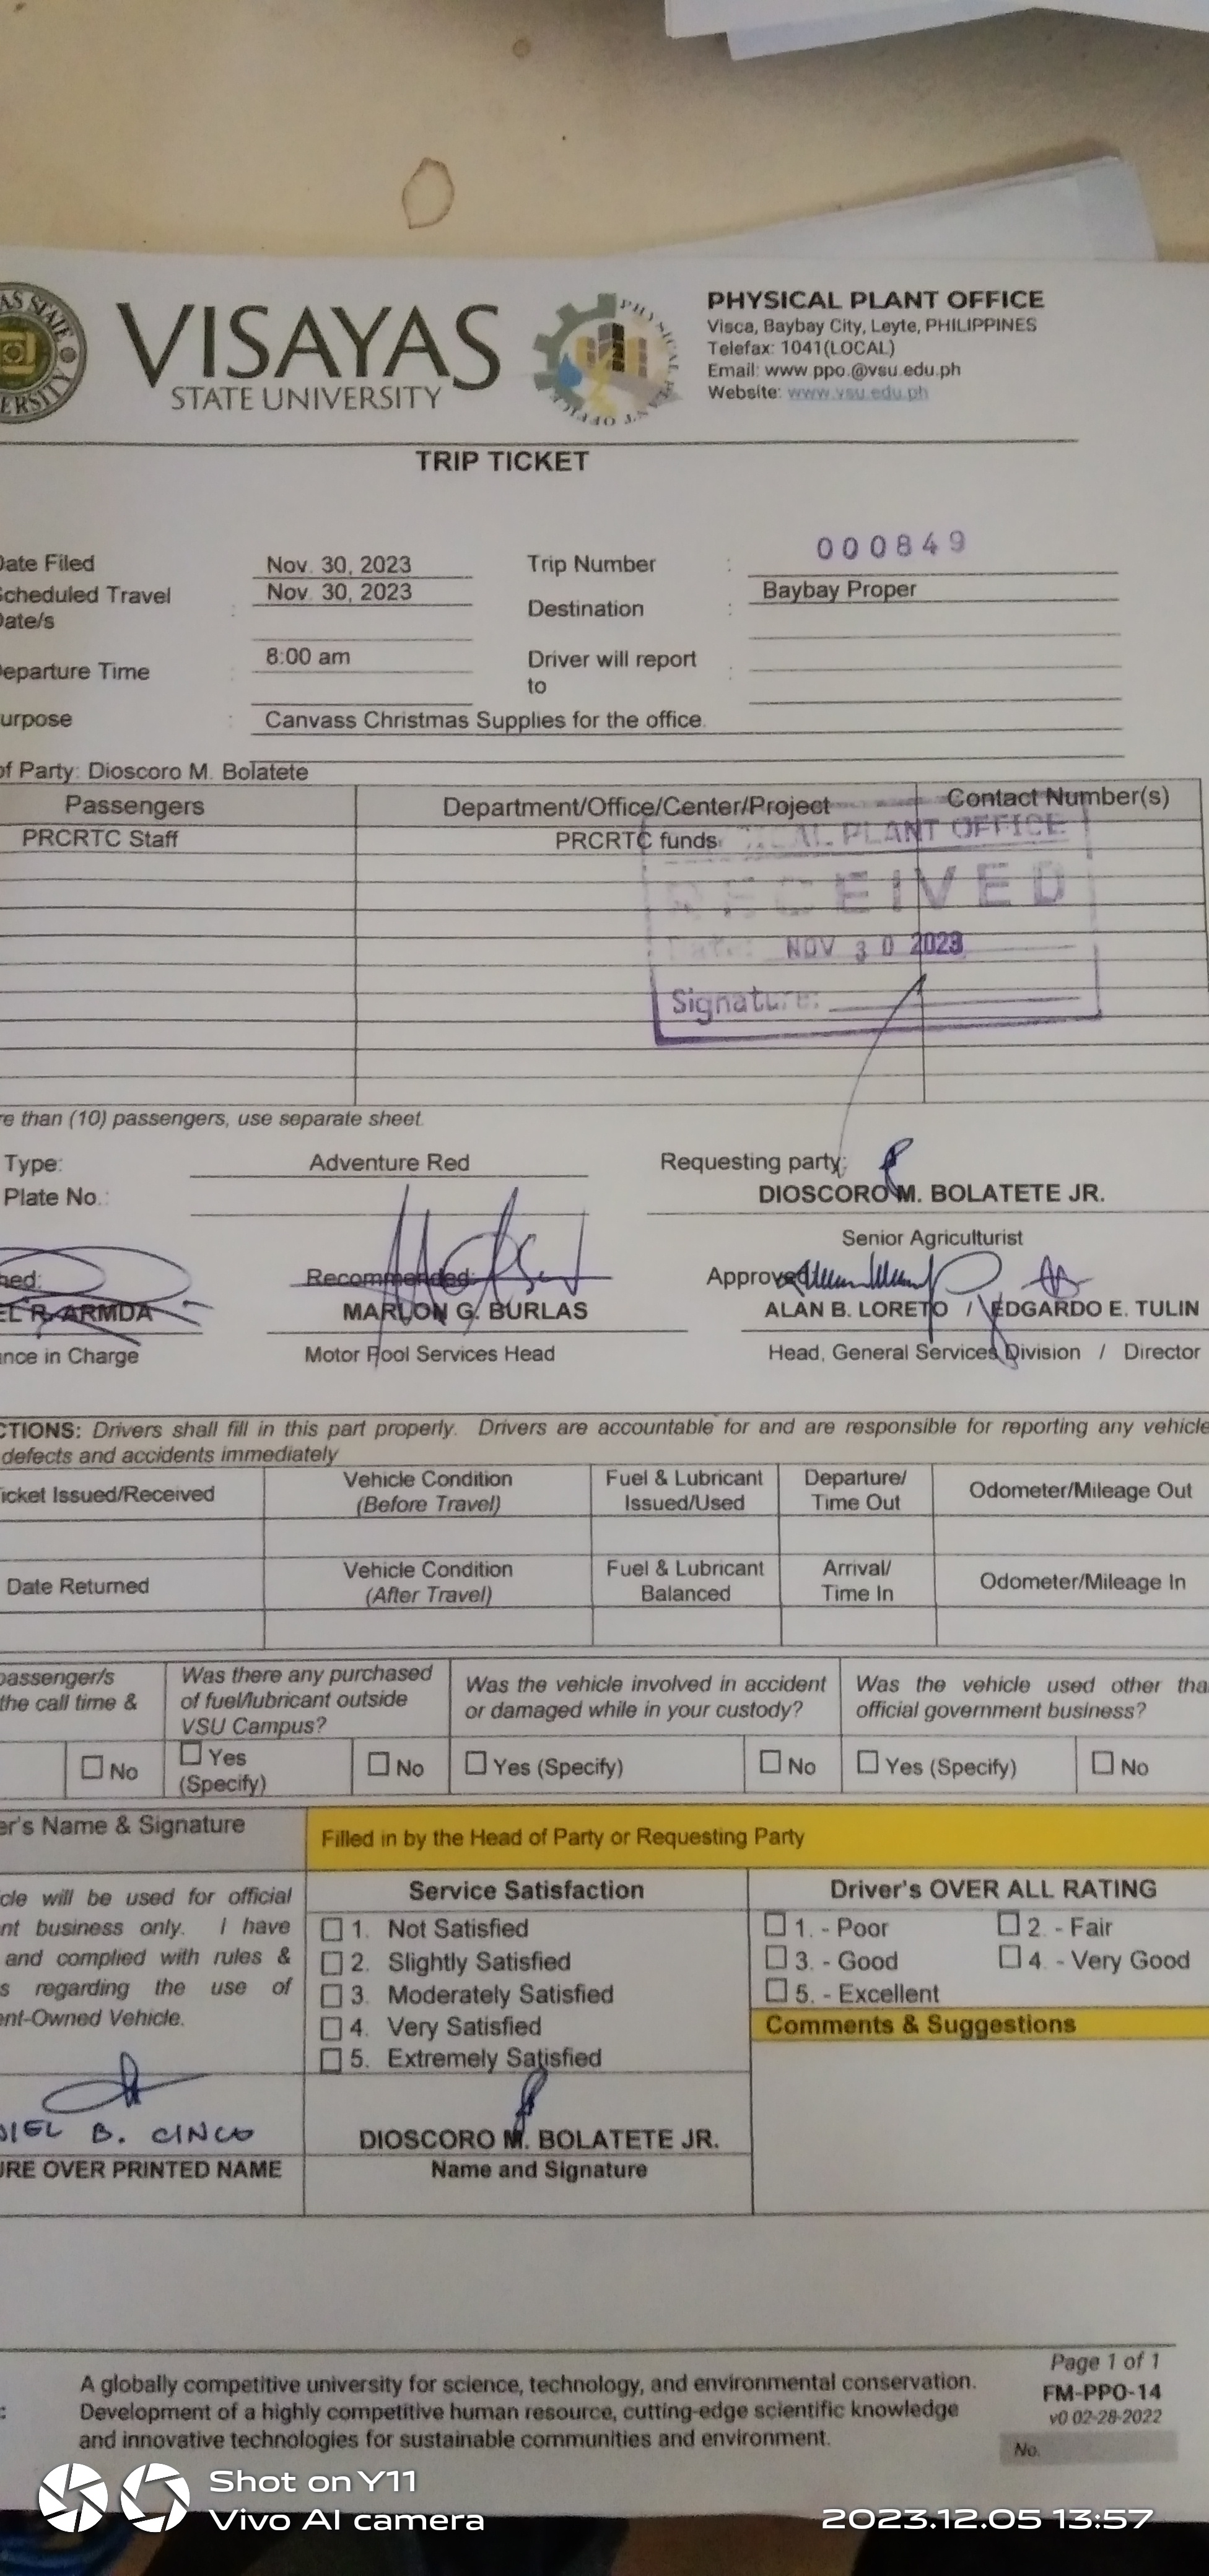 VISAYAS
STATE UNIVERSITY
PHYSICAL PLANT OFFICE
Visca, Baybay City, Leyte, PHILIPPINES
Telefax: 1041(LOCAL)
Email: www.ppo.@vsu.edu.ph
Website: www.vsu.edu.ph
PHYSICAL PLANT OFFICE
TRIP TICKET
Date Filed Nov. 30, 2023 Trip Number : 000849
Scheduled Travel Date/s : Nov. 30, 2023 Destination : Baybay Proper
Departure Time : 8:00 am Driver will report to :
urpose : Canvass Christmas Supplies for the office.
of Party: Dioscoro M. Bolatete
Passengers Department/Office/Center/Project Contact Number(s)
PRCRTC Staff PRCRTC funds
PLANT OFFICE
RECEIVED
Date: NOV 30 2023
Signature:
re than (10) passengers, use separate sheet.
Type: Adventure Red Requesting party:
Plate No.: DIOSCORO M. BOLATETE JR.
Senior Agriculturist
ned: Recommended: Approved
EL R. ARMDA MARLON G. BURLAS ALAN B. LORETO / EDGARDO E. TULIN
nce in Charge Motor Pool Services Head Head, General Services Division / Director
CTIONS: Drivers shall fill in this part properly. Drivers are accountable for and are responsible for reporting any vehicle
defects and accidents immediately
icket Issued/Received Vehicle Condition (Before Travel) Fuel & Lubricant Issued/Used Departure/ Time Out Odometer/Mileage Out
Date Returned Vehicle Condition (After Travel) Fuel & Lubricant Balanced Arrival/ Time In Odometer/Mileage In
passenger/s
the call time &
Was there any purchased
of fuel/lubricant outside
VSU Campus?
Was the vehicle involved in accident
or damaged while in your custody?
Was the vehicle used other tha
official government business?
No Yes (Specify) No Yes (Specify) No Yes (Specify) No
er's Name & Signature
Filled in by the Head of Party or Requesting Party
cle will be used for official
nt business only. I have
and complied with rules &
s regarding the use of
ent-Owned Vehicle.
Service Satisfaction
1. Not Satisfied
2. Slightly Satisfied
3. Moderately Satisfied
4. Very Satisfied
5. Extremely Satisfied
Driver's OVER ALL RATING
1. - Poor 2. - Fair
3. - Good 4. - Very Good
5. - Excellent
Comments & Suggestions
NIEL B. CINCO DIOSCORO M. BOLATETE JR.
URE OVER PRINTED NAME Name and Signature
A globally competitive university for science, technology, and environmental conservation.
Development of a highly competitive human resource, cutting-edge scientific knowledge
and innovative technologies for sustainable communities and environment.
Page 1 of 1
FM-PPO-14
v0 02-28-2022
No.
Shot on Y11
Vivo AI camera
2023.12.05 13:57